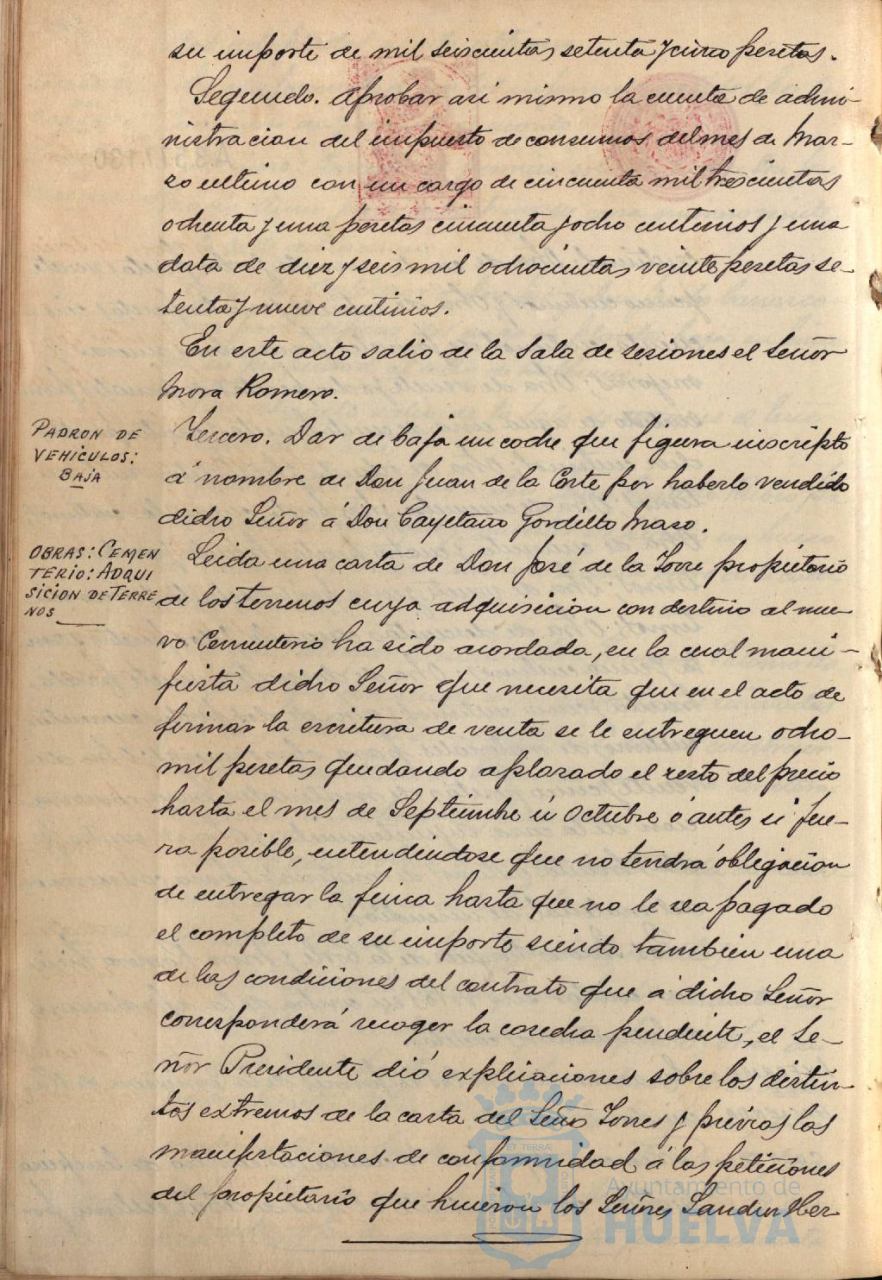 su importe de mil seiscientas setenta y cinco pesetas.
Segundo. Aprobar asi mismo la cuenta de admi-
nistracion del impuesto de consumos del mes de Mar-
zo ultimo con un cargo de cincuenta mil trescientas
ochenta y una pesetas cincuenta y ocho centimos y una
data de diez y seis mil ochocientas veinte pesetas se-
tenta y nueve centimos.
En este acto salio de la Sala de sesiones el Señor
Mora Romero.
PADRON DE
VEHICULOS:
BAJA
Tercero. Dar de baja un coche que figura inscripto
á nombre de Don Juan de la Corte por haberlo vendido
dicho Señor á Don Cayetano Gordillo Maso.
OBRAS: CEMEN
TERIO: ADQUI
SICION DE TERRE
NOS
Leida una carta de Don José de la Torre propietario
de los terrenos cuya adquisicion con destino al nue-
vo Cementerio ha sido acordada, en la cual mani-
fiesta dicho Señor que necesita que en el acto de
firmar la escritura de venta se le entreguen ocho
mil pesetas quedando aplazado el resto del precio
hasta el mes de Septiembre ú Octubre ó antes si fue-
ra posible, entendiendose que no tendrá obligacion
de entregar la finca hasta que no le sea pagado
el completo de su importe siendo tambien una
de las condiciones del contrato que á dicho Señor
corresponderá recoger la cosecha pendiente, el Se-
ñor Presidente dió explicaciones sobre los distin-
tos extremos de la carta del Señor Torres y previas las
manifestaciones de conformidad á las peticiones
del propietario que hicieron los Señores Sander Her
Ayuntamiento de
HUELVA